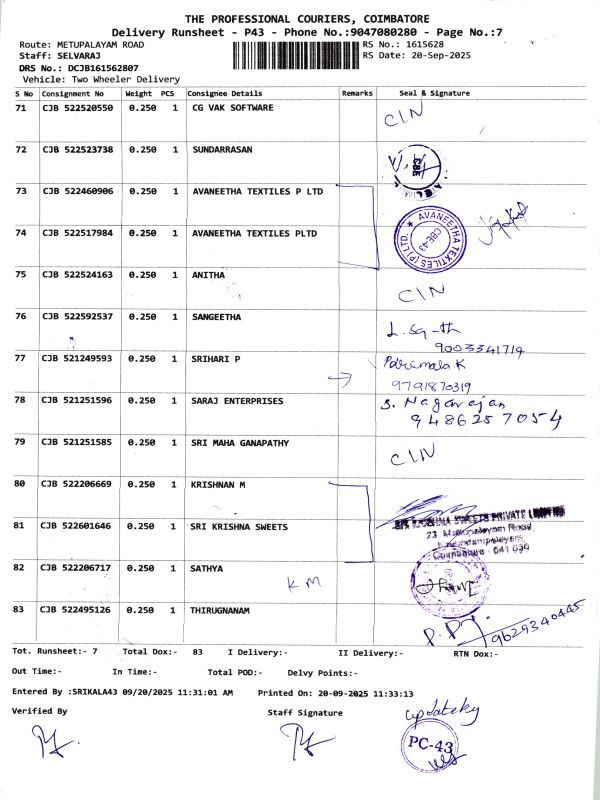 THE PROFESSIONAL COURIERS, COIMBATORE
Delivery Runsheet - P43 - Phone No.:9047080280 - Page No.:7
Route: METUPALAYAM ROAD
RS No.: 1615628
Staff: SELVARAJ
RS Date: 20-Sep-2025
DRS No.: DCJB161562807
Vehicle: Two Wheeler Delivery
S No Consignment No Weight PCS Consignee Details Remarks Seal & Signature
71 CJB 522520550 0.250 1 CG VAK SOFTWARE CIN
72 CJB 522523738 0.250 1 SUNDARRASAN CBE
73 CJB 522460906 0.250 1 AVANEETHA TEXTILES P LTD
74 CJB 522517984 0.250 1 AVANEETHA TEXTILES PLTD AVANEETHA TEXTILES (P) LTD. CBE-43
75 CJB 522524163 0.250 1 ANITHA CIN
76 CJB 522592537 0.250 1 SANGEETHA
9003341719
77 CJB 521249593 0.250 1 SRIHARI P Parimala K
9791870319
78 CJB 521251596 0.250 1 SARAJ ENTERPRISES S. Nagarajan
9486257054
79 CJB 521251585 0.250 1 SRI MAHA GANAPATHY CIN
80 CJB 522206669 0.250 1 KRISHNAN M
81 CJB 522601646 0.250 1 SRI KRISHNA SWEETS SRI KRISHNA SWEETS PRIVATE LIMITED
23 Mettupalayam Road,
Coimbatore - 641 039
82 CJB 522206717 0.250 1 SATHYA KM
83 CJB 522495126 0.250 1 THIRUGNANAM
9629340445
Tot. Runsheet:- 7 Total Dox:- 83 I Delivery:- II Delivery:- RTN Dox:-
Out Time:- In Time:- Total POD:- Delvy Points:-
Entered By :SRIKALA43 09/20/2025 11:31:01 AM Printed On: 20-09-2025 11:33:13
Verified By Staff Signature
PC-43